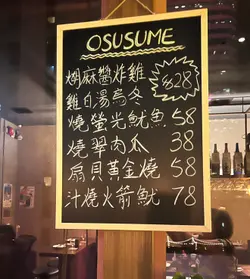 OSUSUME
胡麻醬炸雞
$28
雞白湯烏冬
燒螢光魷魚 58
燒翠肉瓜 38
扇貝黃金燒 58
汁燒火箭魷 78